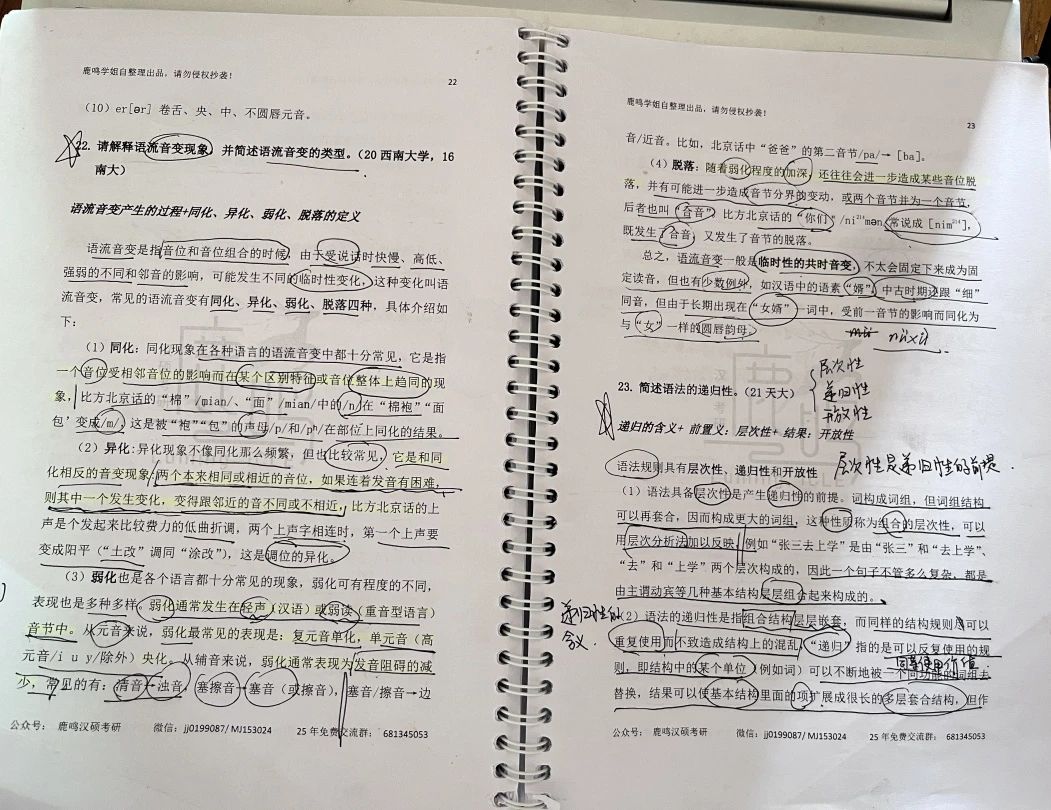 鹿鸣学姐自整理出品，请勿侵权抄袭！
22
（10）er[ər] 卷舌、央、中、不圆唇元音。
22. 请解释语流音变现象，并简述语流音变的类型。（20 西南大学，16
南大）
语流音变产生的过程+同化、异化、弱化、脱落的定义
语流音变是指音位和音位组合的时候，由于受说话时快慢、高低、
强弱的不同和邻音的影响，可能发生不同的临时性变化，这种变化叫语
流音变，常见的语流音变有同化、异化、弱化、脱落四种，具体介绍如
下：
（1）同化：同化现象在各种语言的语流音变中都十分常见，它是指
一个音位受相邻音位的影响而在某个区别特征或音位整体上趋同的现
象，比方北京话的“棉”/mian/、“面”/mian/中的/n/在“棉袍”“面
包’变成/m/，这是被“袍”“包”的声母/p/和/pʰ/在部位上同化的结果。
（2）异化:异化现象不像同化那么频繁，但也比较常见，它是和同
化相反的音变现象，两个本来相同或相近的音位，如果连着发音有困难，
则其中一个发生变化，变得跟邻近的音不同或不相近，比方北京话的上
声是个发起来比较费力的低曲折调，两个上声字相连时，第一个上声要
变成阳平（“土改”调同“涂改”），这是调位的异化。
（3）弱化也是各个语言都十分常见的现象，弱化可有程度的不同，
表现也是多种多样。弱化通常发生在轻声（汉语）或弱读（重音型语言）
音节中。从元音来说，弱化最常见的表现是：复元音单化，单元音（高
元音/i u y/除外）央化。从辅音来说，弱化通常表现为发音阻碍的减
少，常见的有：清音→浊音，塞擦音→塞音（或擦音），塞音/擦音→边
公众号： 鹿鸣汉硕考研 微信：jj0199087/ MJ153024 25 年免费交流群： 681345053
鹿鸣学姐自整理出品，请勿侵权抄袭！
23
音/近音。比如，北京话中“爸爸”的第二音节/pa/→［ba］。
（4）脱落：随着弱化程度的加深，还往往会进一步造成某些音位脱
落，并有可能进一步造成音节分界的变动，或两个音节并为一个音节，
后者也叫“合音”）比方北京话的“你们”/ni²¹⁴mən/常说成［nim²¹⁴］，
既发生了合音，又发生了音节的脱落。
总之，语流音变一般是临时性的共时音变，不太会固定下来成为固
定读音，但也有少数例外，如汉语中的语素“婿”，中古时期还跟“细”
同音，但由于长期出现在“女婿”一词中，受前一音节的影响而同化为
与“女”一样的圆唇韵母。
nüxü
23. 简述语法的递归性。（21 天大）
层次性
递归性
开放性
递归的含义+ 前置义：层次性+ 结果：开放性
语法规则具有层次性、递归性和开放性
层次性是递归性的前提.
（1）语法具备层次性是产生递归性的前提。词构成词组，但词组结构
可以再套合，因而构成更大的词组，这种性质称为组合的层次性，可以
用层次分析法加以反映。例如“张三去上学”是由“张三”和“去上学”、
“去”和“上学”两个层次构成的，因此一个句子不管多么复杂，都是
由主谓动宾等几种基本结构层层组合起来构成的。
递归性的
含义.
（2）语法的递归性是指组合结构层层嵌套，而同样的结构规则可以
重复使用而不致造成结构上的混乱，“递归”指的是可以反复使用的规
则，即结构中的某个单位（例如词）可以不断地被一个同功能的词组去
替换，结果可以使基本结构里面的项扩展成很长的多层套合结构，但作
公众号： 鹿鸣汉硕考研 微信：jj0199087/ MJ153024 25 年免费交流群： 681345053